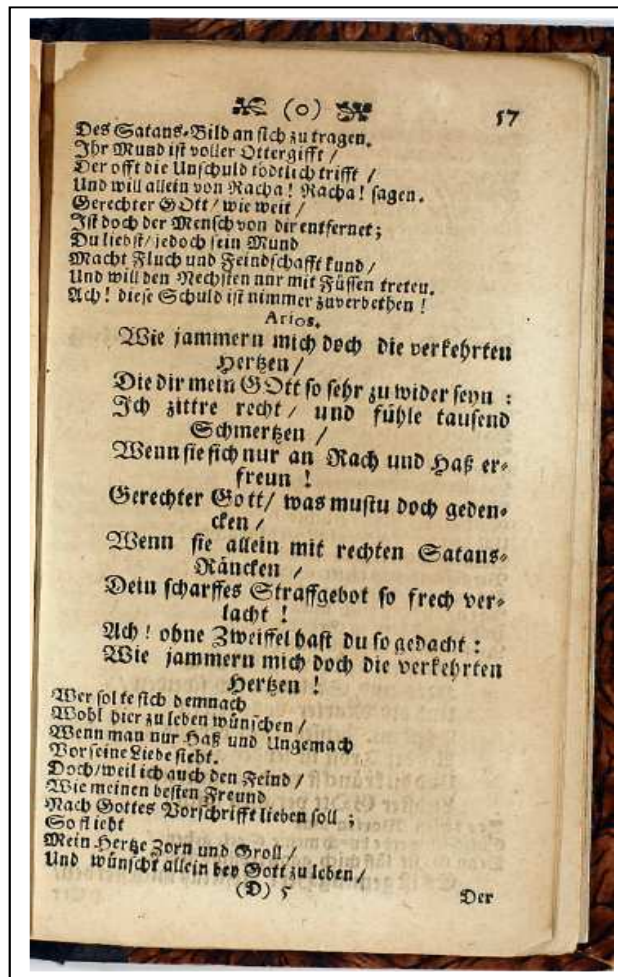 (o) 57
Des Satans-Bild an sich zu tragen.
Ihr Mund ist voller Ottergifft /
Der offt die Unschuld tödtlich trifft /
Und will allein von Racha! Racha! sagen.
Gerechter GOtt / wie weit /
Ist doch der Mensch von dir entfernet;
Du liebst / jedoch sein Mund
Macht Fluch und Feindschafft kund /
Und will den Nechsten nur mit Füssen treten.
Ach! diese Schuld ist nimmer zuverbethen!
Arios.
Wie jammern mich doch die verkehrten
Hertzen /
Die dir mein GOtt so sehr zu wider seyn:
Ich zittre recht / und fühle tausend
Schmertzen /
Wenn sie sich nur an Rach und Haß er-
freun!
Gerechter Gott / was mustu doch geden-
cken /
Wenn sie allein mit rechten Satans-
Räncken /
Dein scharffes Straffgebot so frech ver-
lacht!
Ach! ohne Zweiffel hast du so gedacht:
Wie jammern mich doch die verkehrten
Hertzen!
Wer solte sich demnach
Wohl hier zu leben wünschen /
Wenn man nur Haß und Ungemach
Vor seine Liebe sieht.
Doch / weil ich auch den Feind /
Wie meinen besten Freund
Nach Gottes Vorschrifft lieben soll;
So flieht
Mein Hertze Zorn und Groll /
Und wünscht allein bey Gott zu leben /
(D) 5 Der